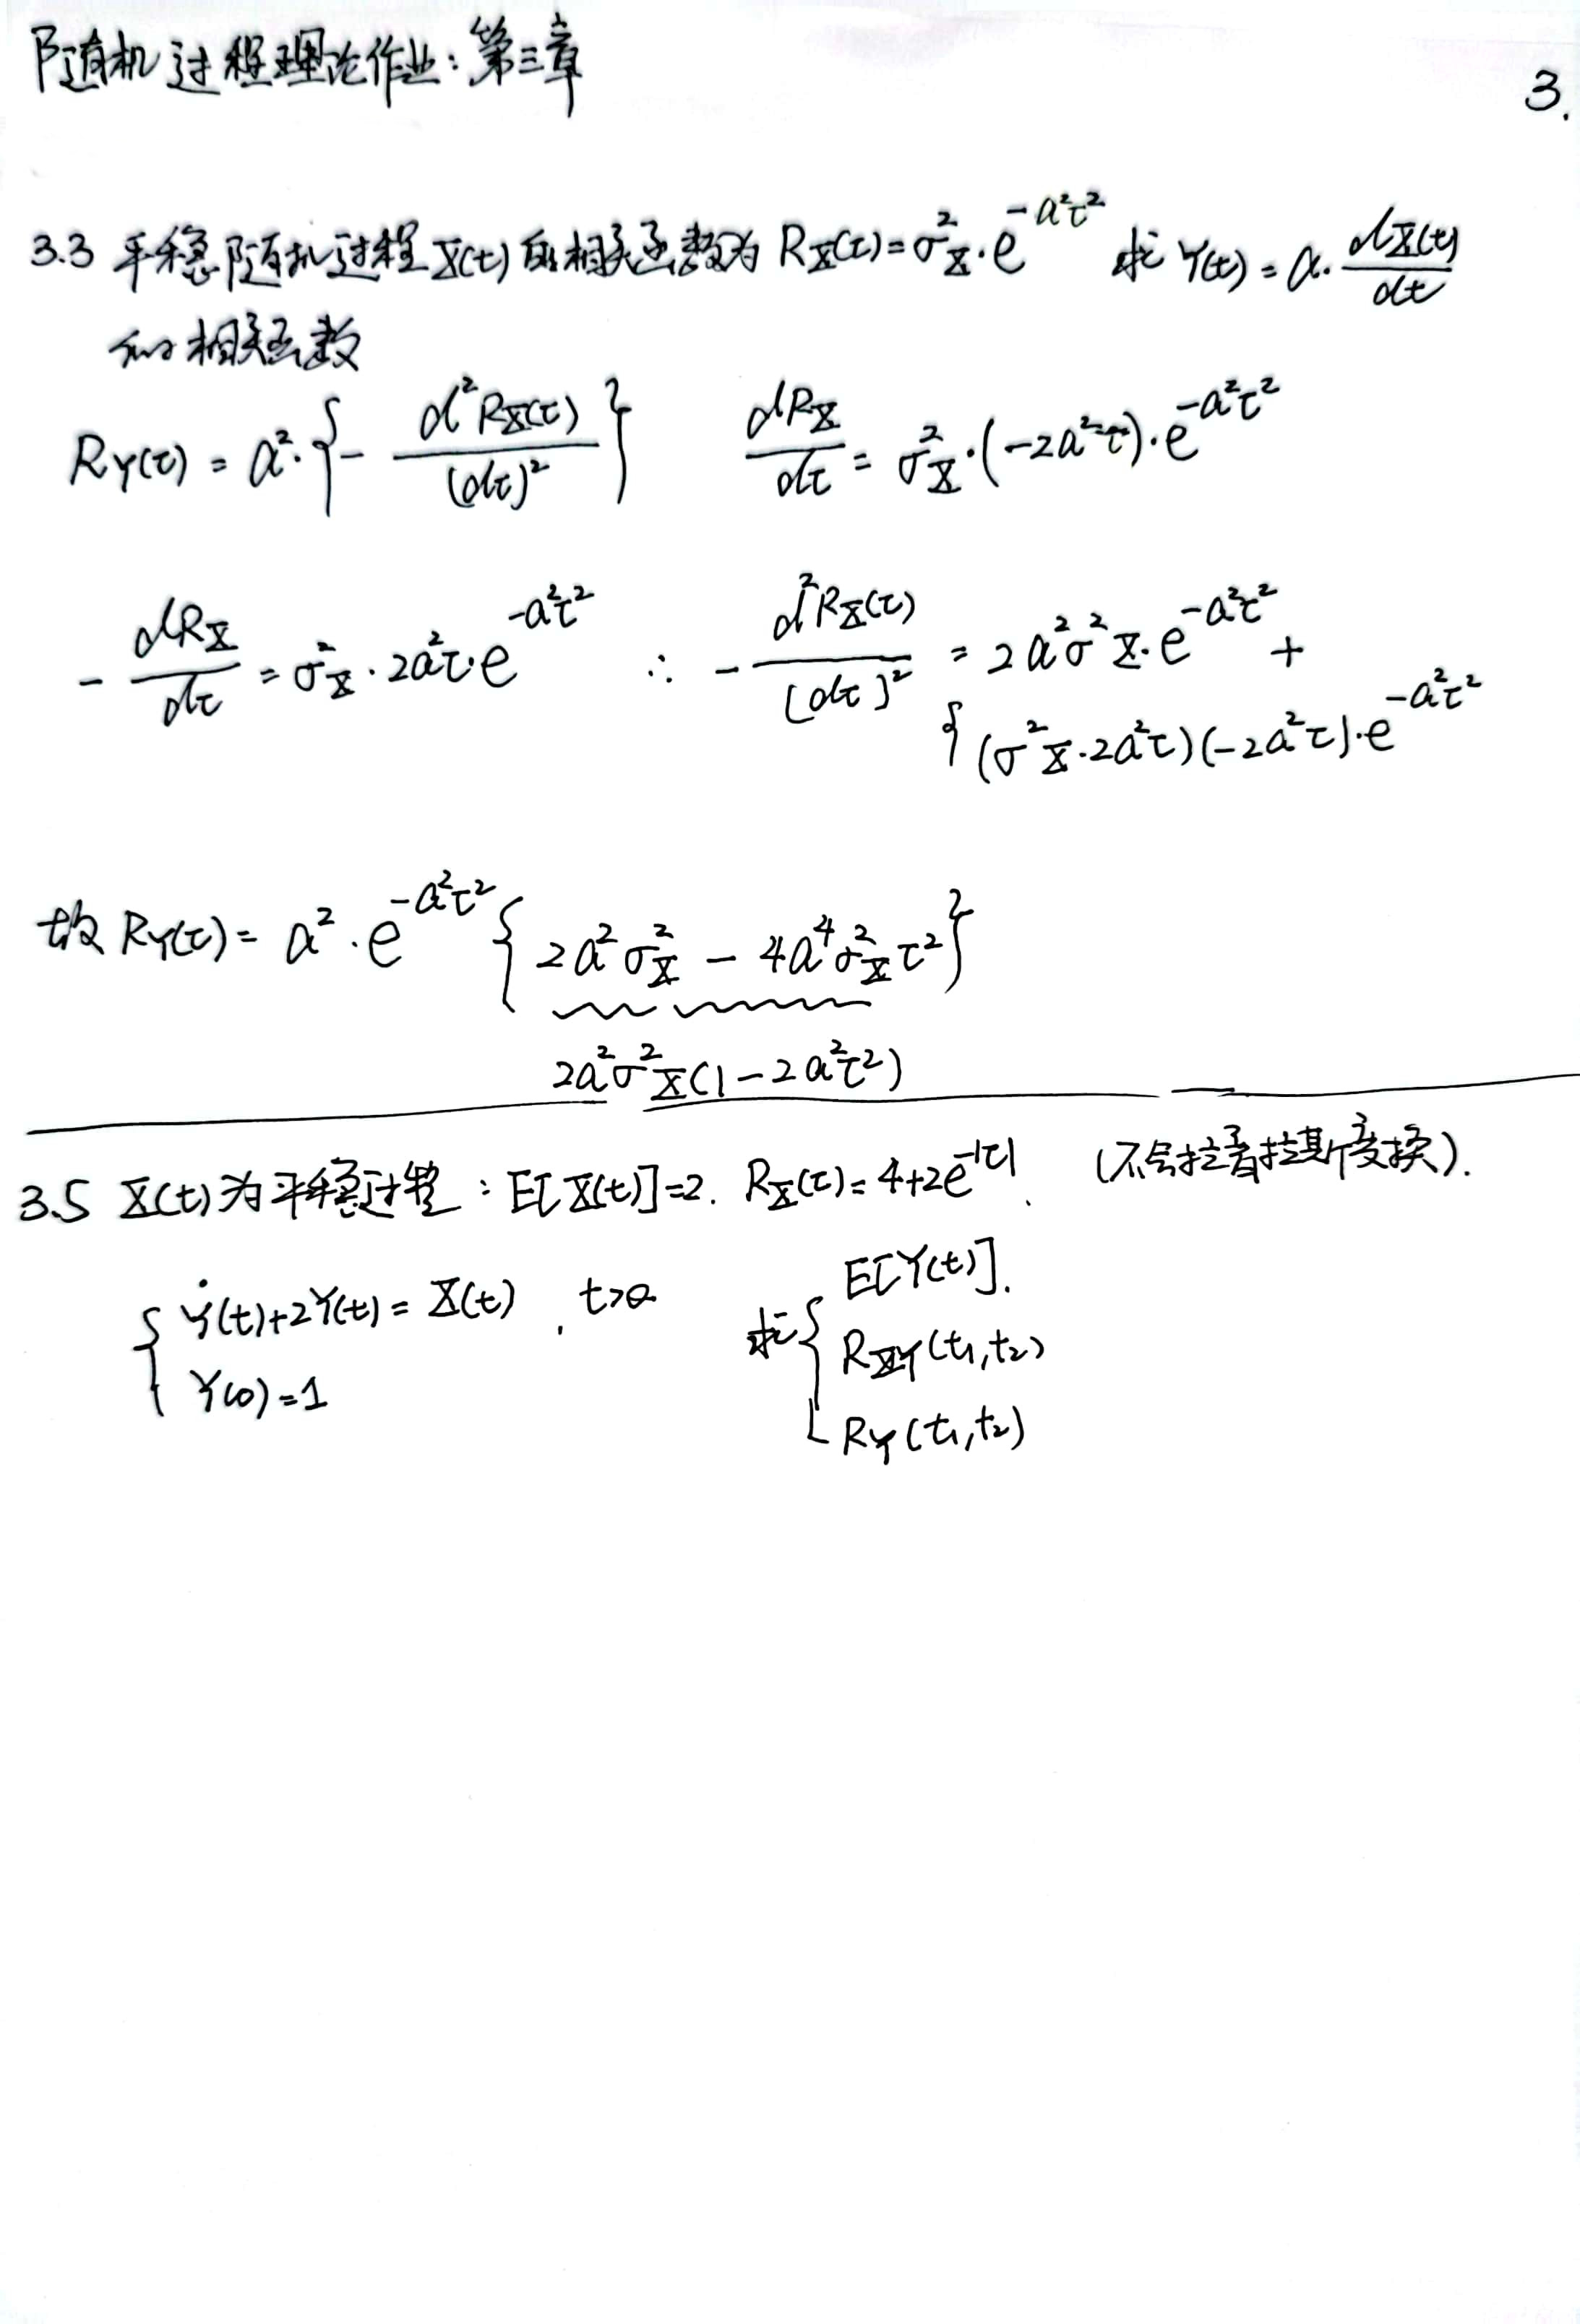 随机过程理论作业：第三章
3.
3.3 平稳随机过程 X(t) 的相关函数为 R_X(τ)=σ²_X·e^{-a²τ²} 求 Y(t)=a·dX(t)/dt
的相关函数
R_Y(τ) = a²·{- d²R_X(τ)/(dτ)²} dR_X/dτ = σ²_X·(-2a²τ)·e^{-a²τ²}
- dR_X/dτ = σ²_X·2a²τ·e^{-a²τ²} ∴ - d²R_X(τ)/[dτ]² = 2a²σ²_X·e^{-a²τ²} +
{(σ²_X·2a²τ)(-2a²τ)·e^{-a²τ²}
故 R_Y(τ) = a²·e^{-a²τ²}{2a²σ²_X - 4a⁴σ²_Xτ²}
2a²σ²_X(1-2a²τ²)
3.5 X(t) 为平稳过程：E[X(t)]=2. R_X(τ)=4+2e^{-|τ|}. (不会拉普拉斯变换).
{ Ẏ(t)+2Y(t)=X(t), t>0
Y(0)=1
求{ E[Y(t)].
R_{XY}(t₁,t₂)
R_Y(t₁,t₂)